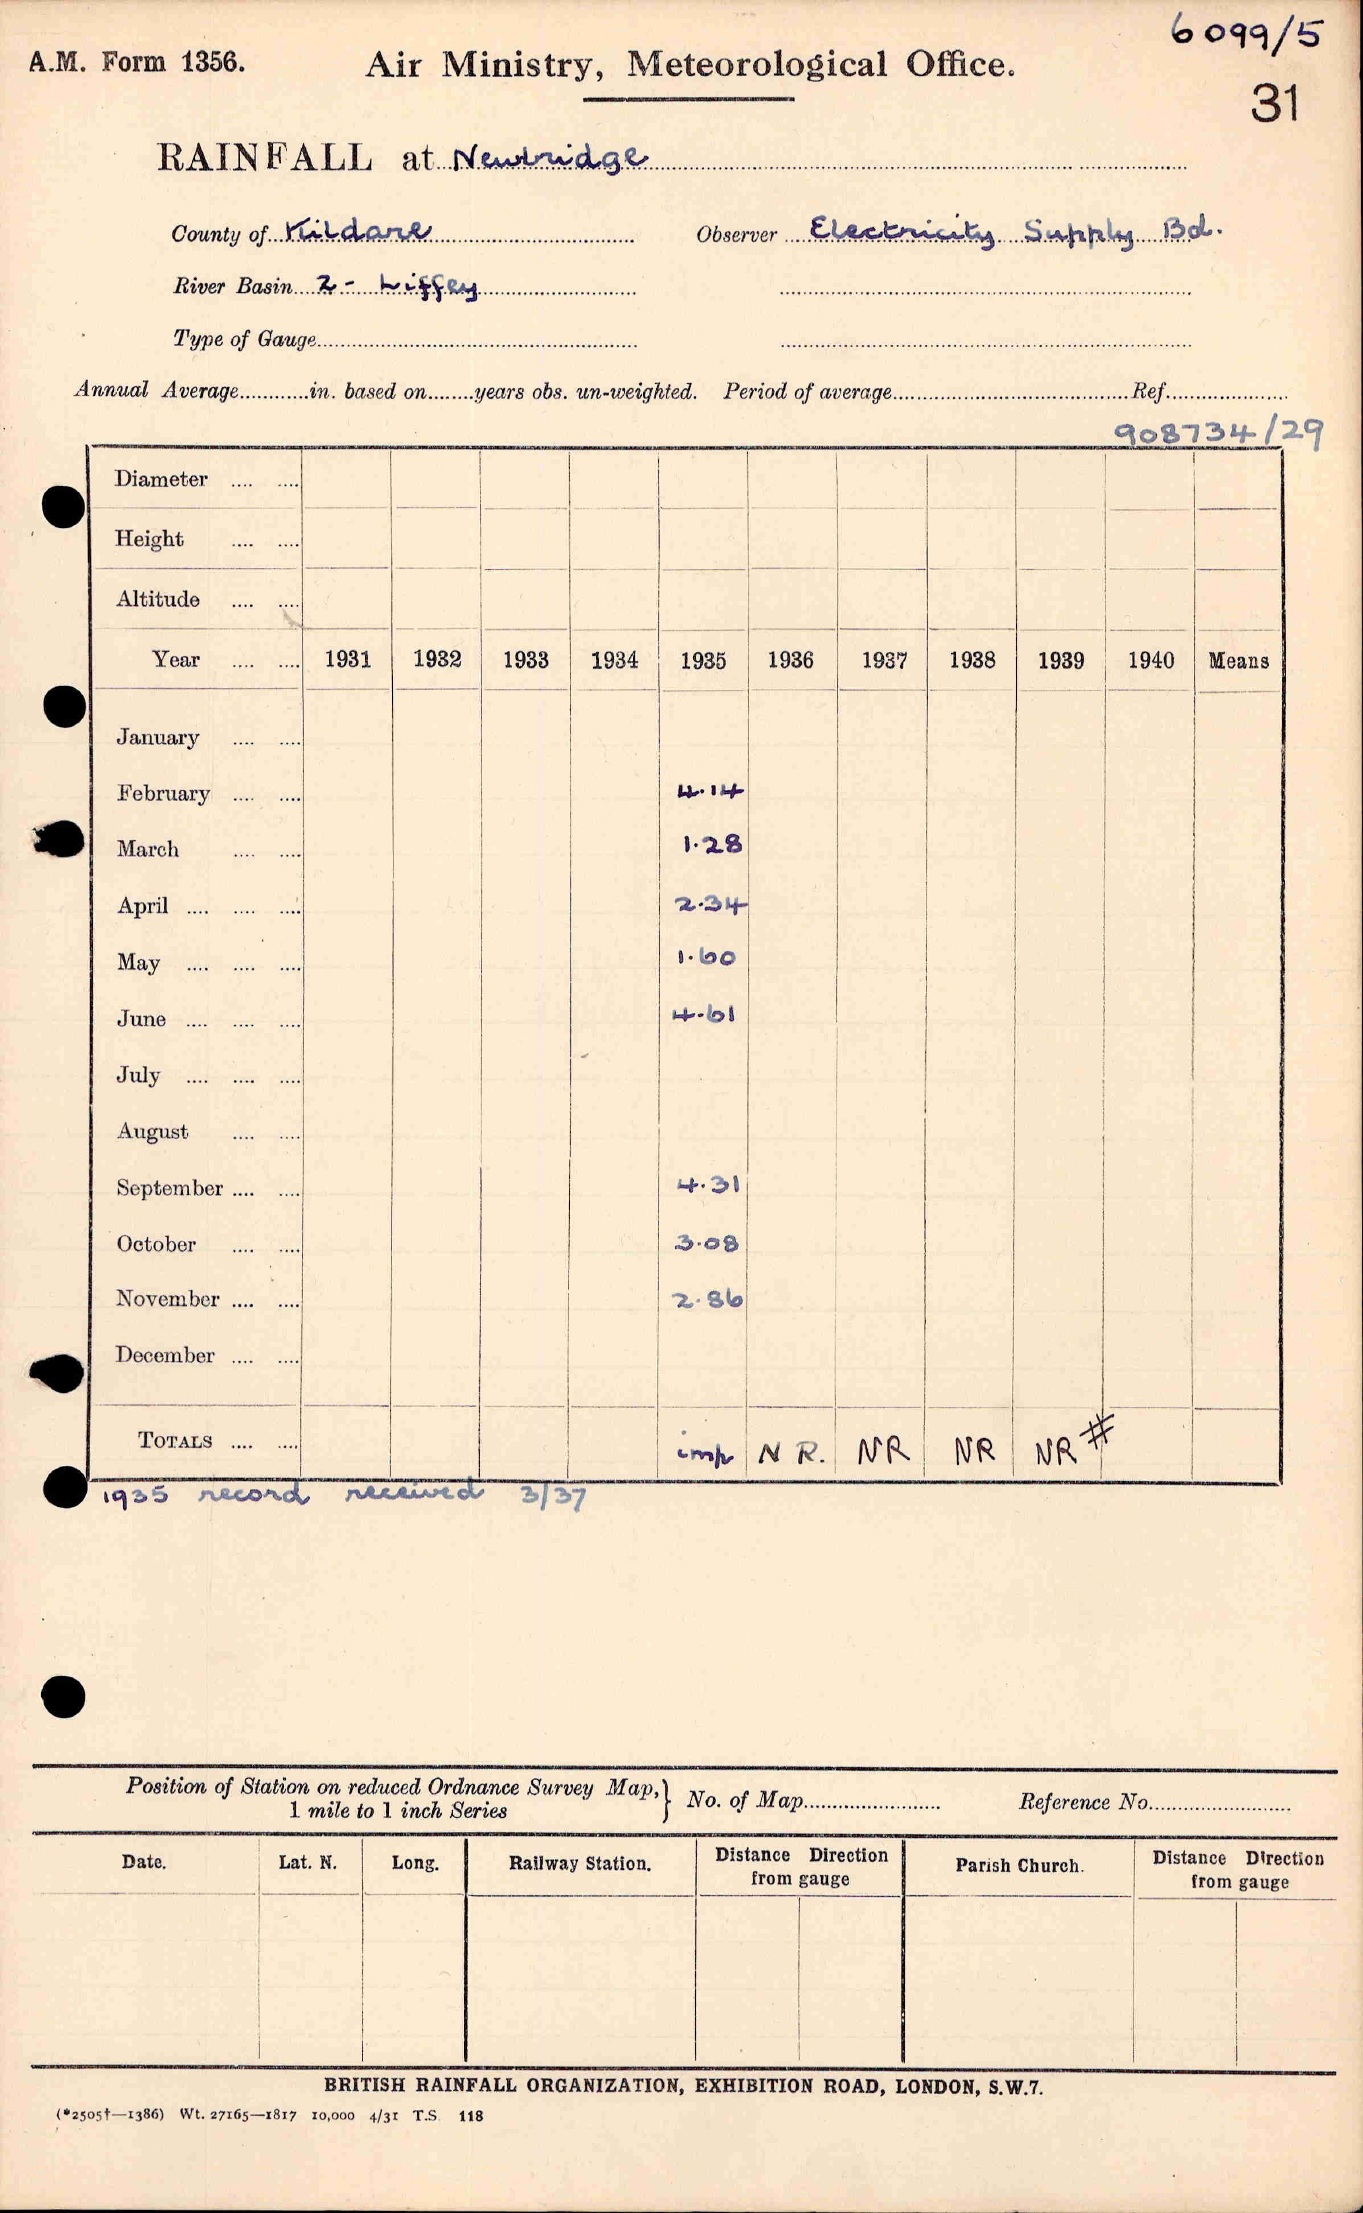 6099/5
A.M. Form 1356. Air Ministry, Meteorological Office.
31
RAINFALL at Newbridge
County of Kildare Observer Electricity Supply Bd.
River Basin 2 - Liffey
Type of Gauge
Annual Average............in. based on........years obs. un-weighted. Period of average........Ref.
908734/29
Diameter .... ....
Height .... ....
Altitude .... ....
Year .... .... 1931 1932 1933 1934 1935 1936 1937 1938 1939 1940 Means
January .... ....
February .... .... 4.14
March .... .... 1.28
April .... .... .... 2.34
May .... .... .... 1.60
June .... .... .... 4.61
July .... .... ....
August .... ....
September .... .... 4.31
October .... .... 3.08
November .... .... 2.86
December .... ....
TOTALS .... .... imp N R. NR NR NR #
1935 record received 3/37
Position of Station on reduced Ordnance Survey Map, } No. of Map........ Reference No.........
1 mile to 1 inch Series
Date. Lat. N. Long. Railway Station. Distance Direction Parish Church. Distance Direction
from gauge from gauge
BRITISH RAINFALL ORGANIZATION, EXHIBITION ROAD, LONDON, S.W.7.
(*2505†—1386) Wt. 27165—1817 10,000 4/31 T.S. 118